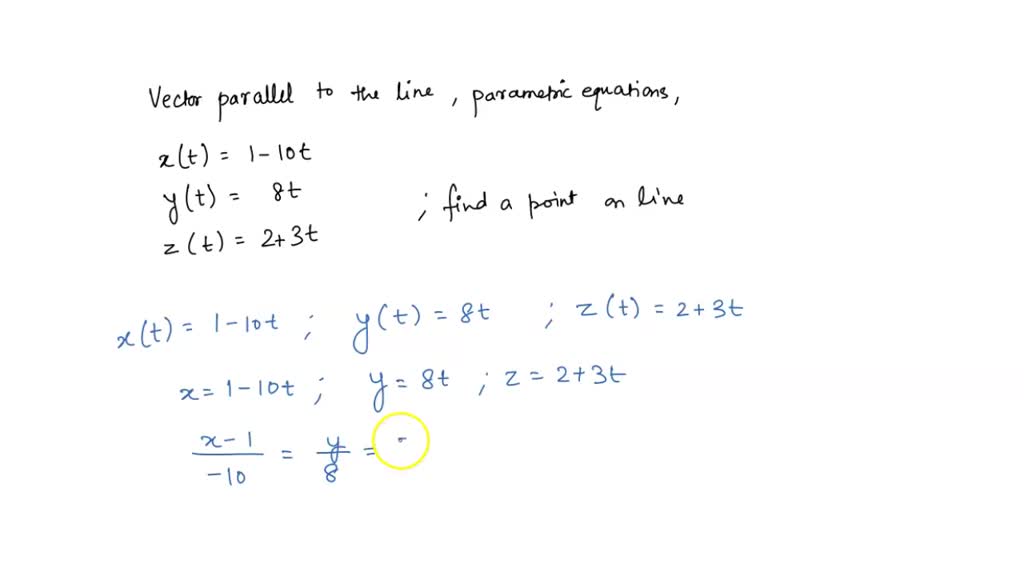 Vector parallel to the line, parametric equations,
x(t) = 1-10t
y(t) = 8t ; find a point on line
z(t) = 2+3t
x(t) = 1-10t ; y(t) = 8t ; z(t) = 2+3t
x = 1-10t ; y = 8t ; z = 2+3t
x-1/-10 = y/8 =